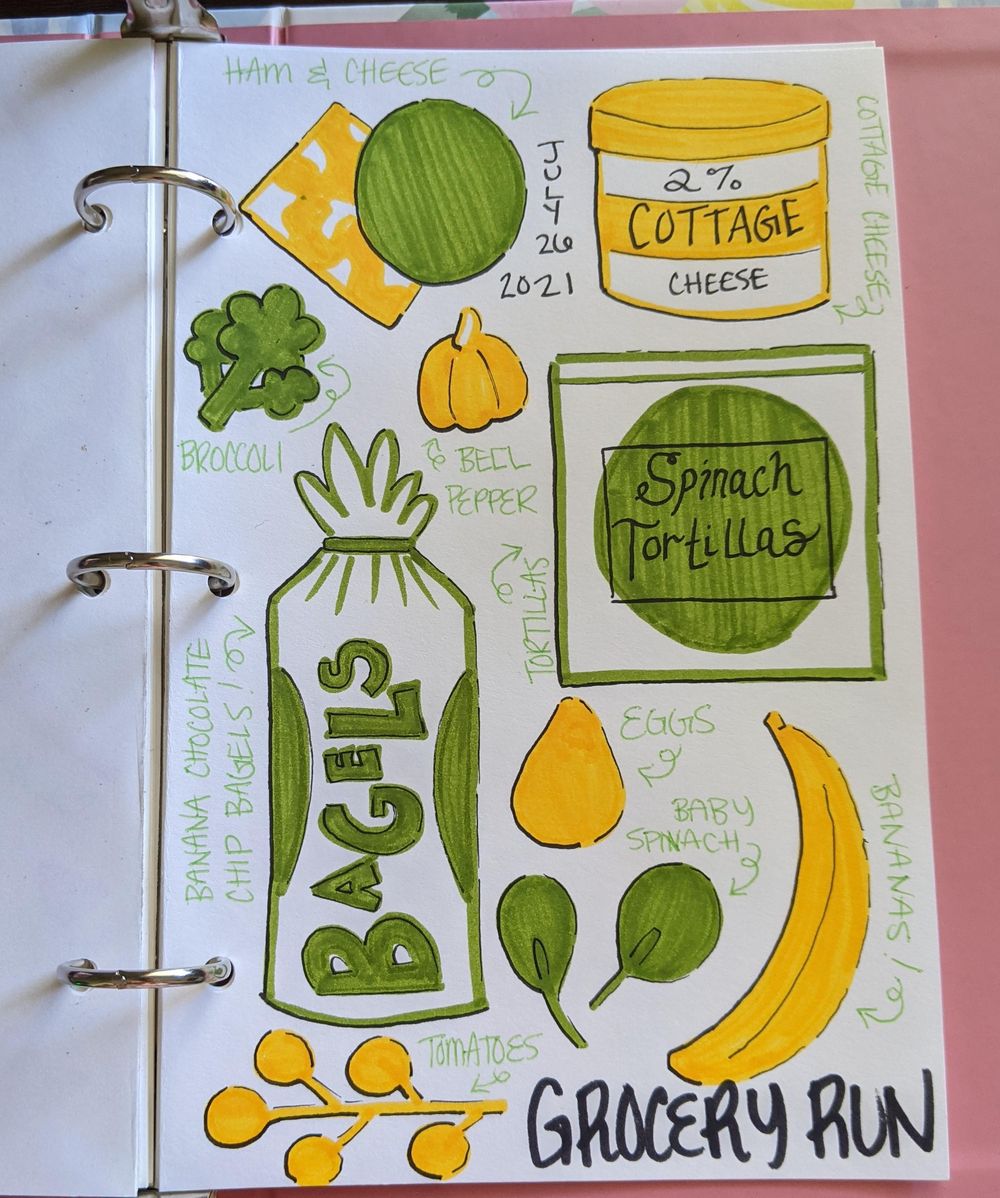 HAM & CHEESE
JULY
26
2021
2%
COTTAGE
CHEESE
COTTAGE CHEESE
BROCCOLI
BELL
PEPPER
Spinach
Tortillas
TORTILLAS
BANANA CHOCOLATE
CHIP BAGELS!
BAGELS
EGGS
BABY
SPINACH
BANANAS!
TOMATOES
GROCERY RUN